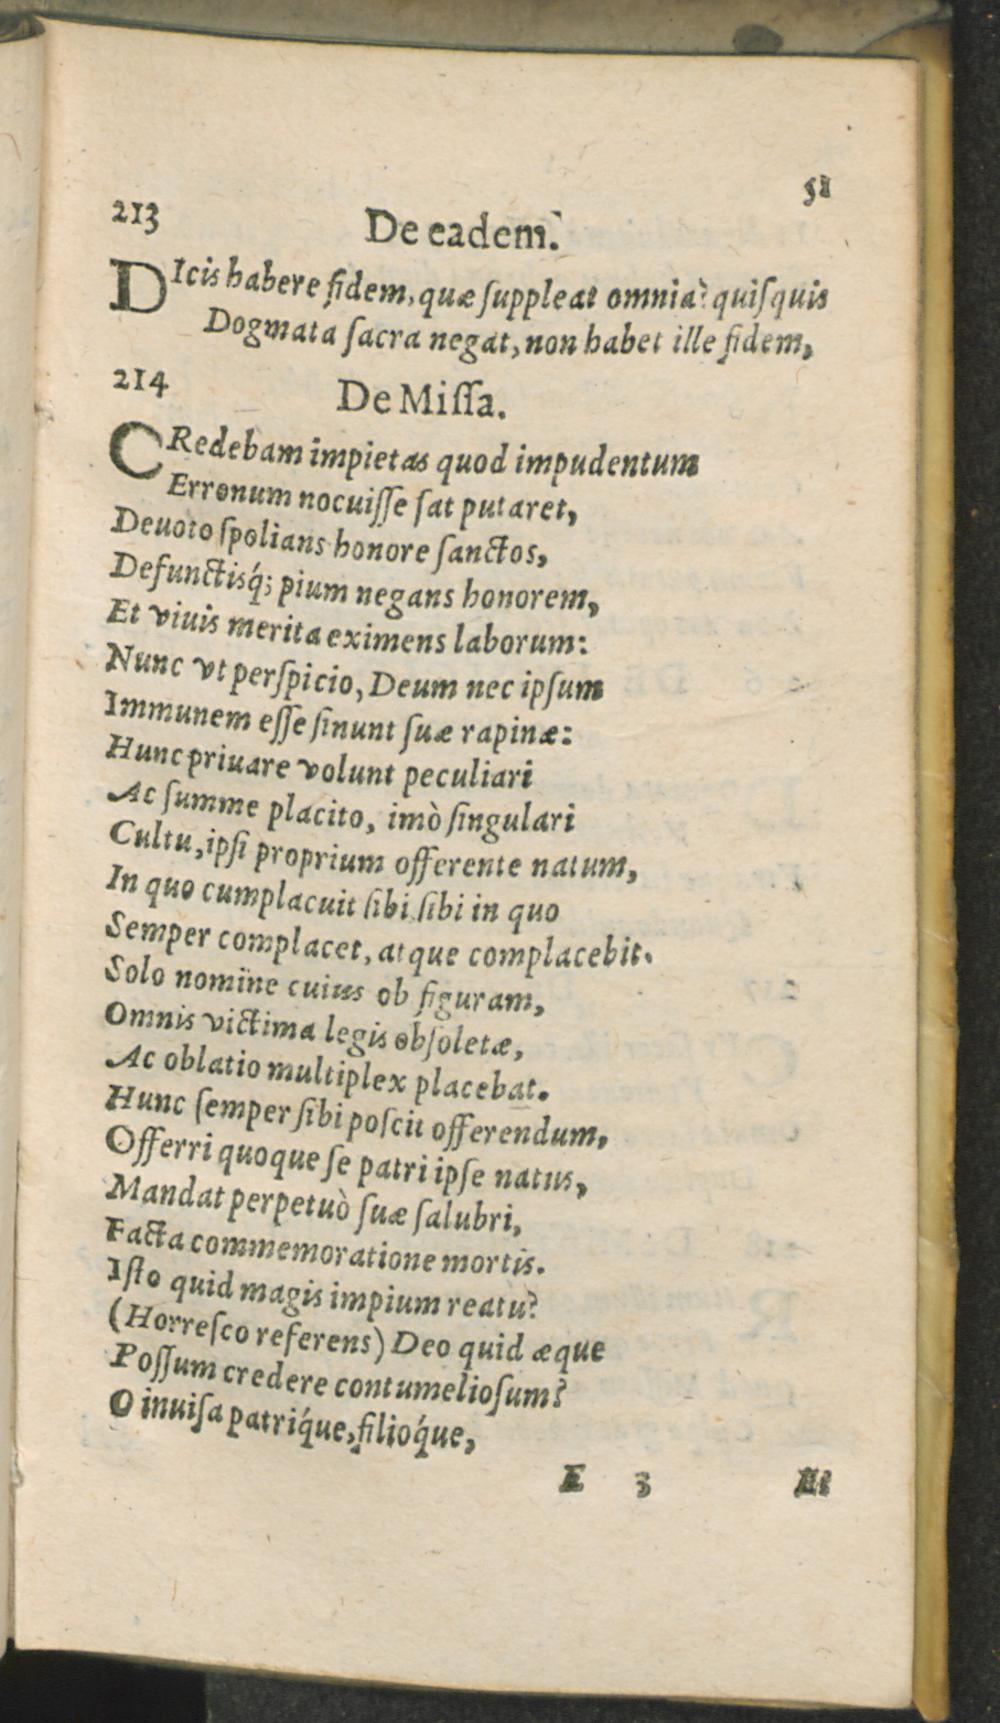 51
213
De eadem.
DIcis habere fidem, quæ ſuppleat omnia? quiſquis
Dogmata ſacra negat, non habet ille fidem,
214
De Miſſa.
CRedebam impietas quod impudentum
Erronum nocuiſſe ſat putaret,
Deuoto ſpolians honore ſanctos,
Defunctisq́; pium negans honorem,
Et viuis merita eximens laborum:
Nunc vt perſpicio, Deum nec ipſum
Immunem eſſe ſinunt ſuæ rapinæ:
Hunc priuare volunt peculiari
Ac ſumme placito, imò ſingulari
Cultu, ipſi proprium offerente natum,
In quo cumplacuit ſibi ſibi in quo
Semper complacet, atque complacebit.
Solo nomine cuius ob figuram,
Omnis victima legis obſoletæ,
Ac oblatio multiplex placebat.
Hunc ſemper ſibi poſcit offerendum,
Offerri quoque ſe patri ipſe natus,
Mandat perpetuò ſuæ ſalubri,
Facta commemoratione mortis.
Iſto quid magis impium reatu?
(Horreſco referens) Deo quid æque
Poſſum credere contumelioſum?
O inuiſa patriq́ue, filioq́ue,
E 3